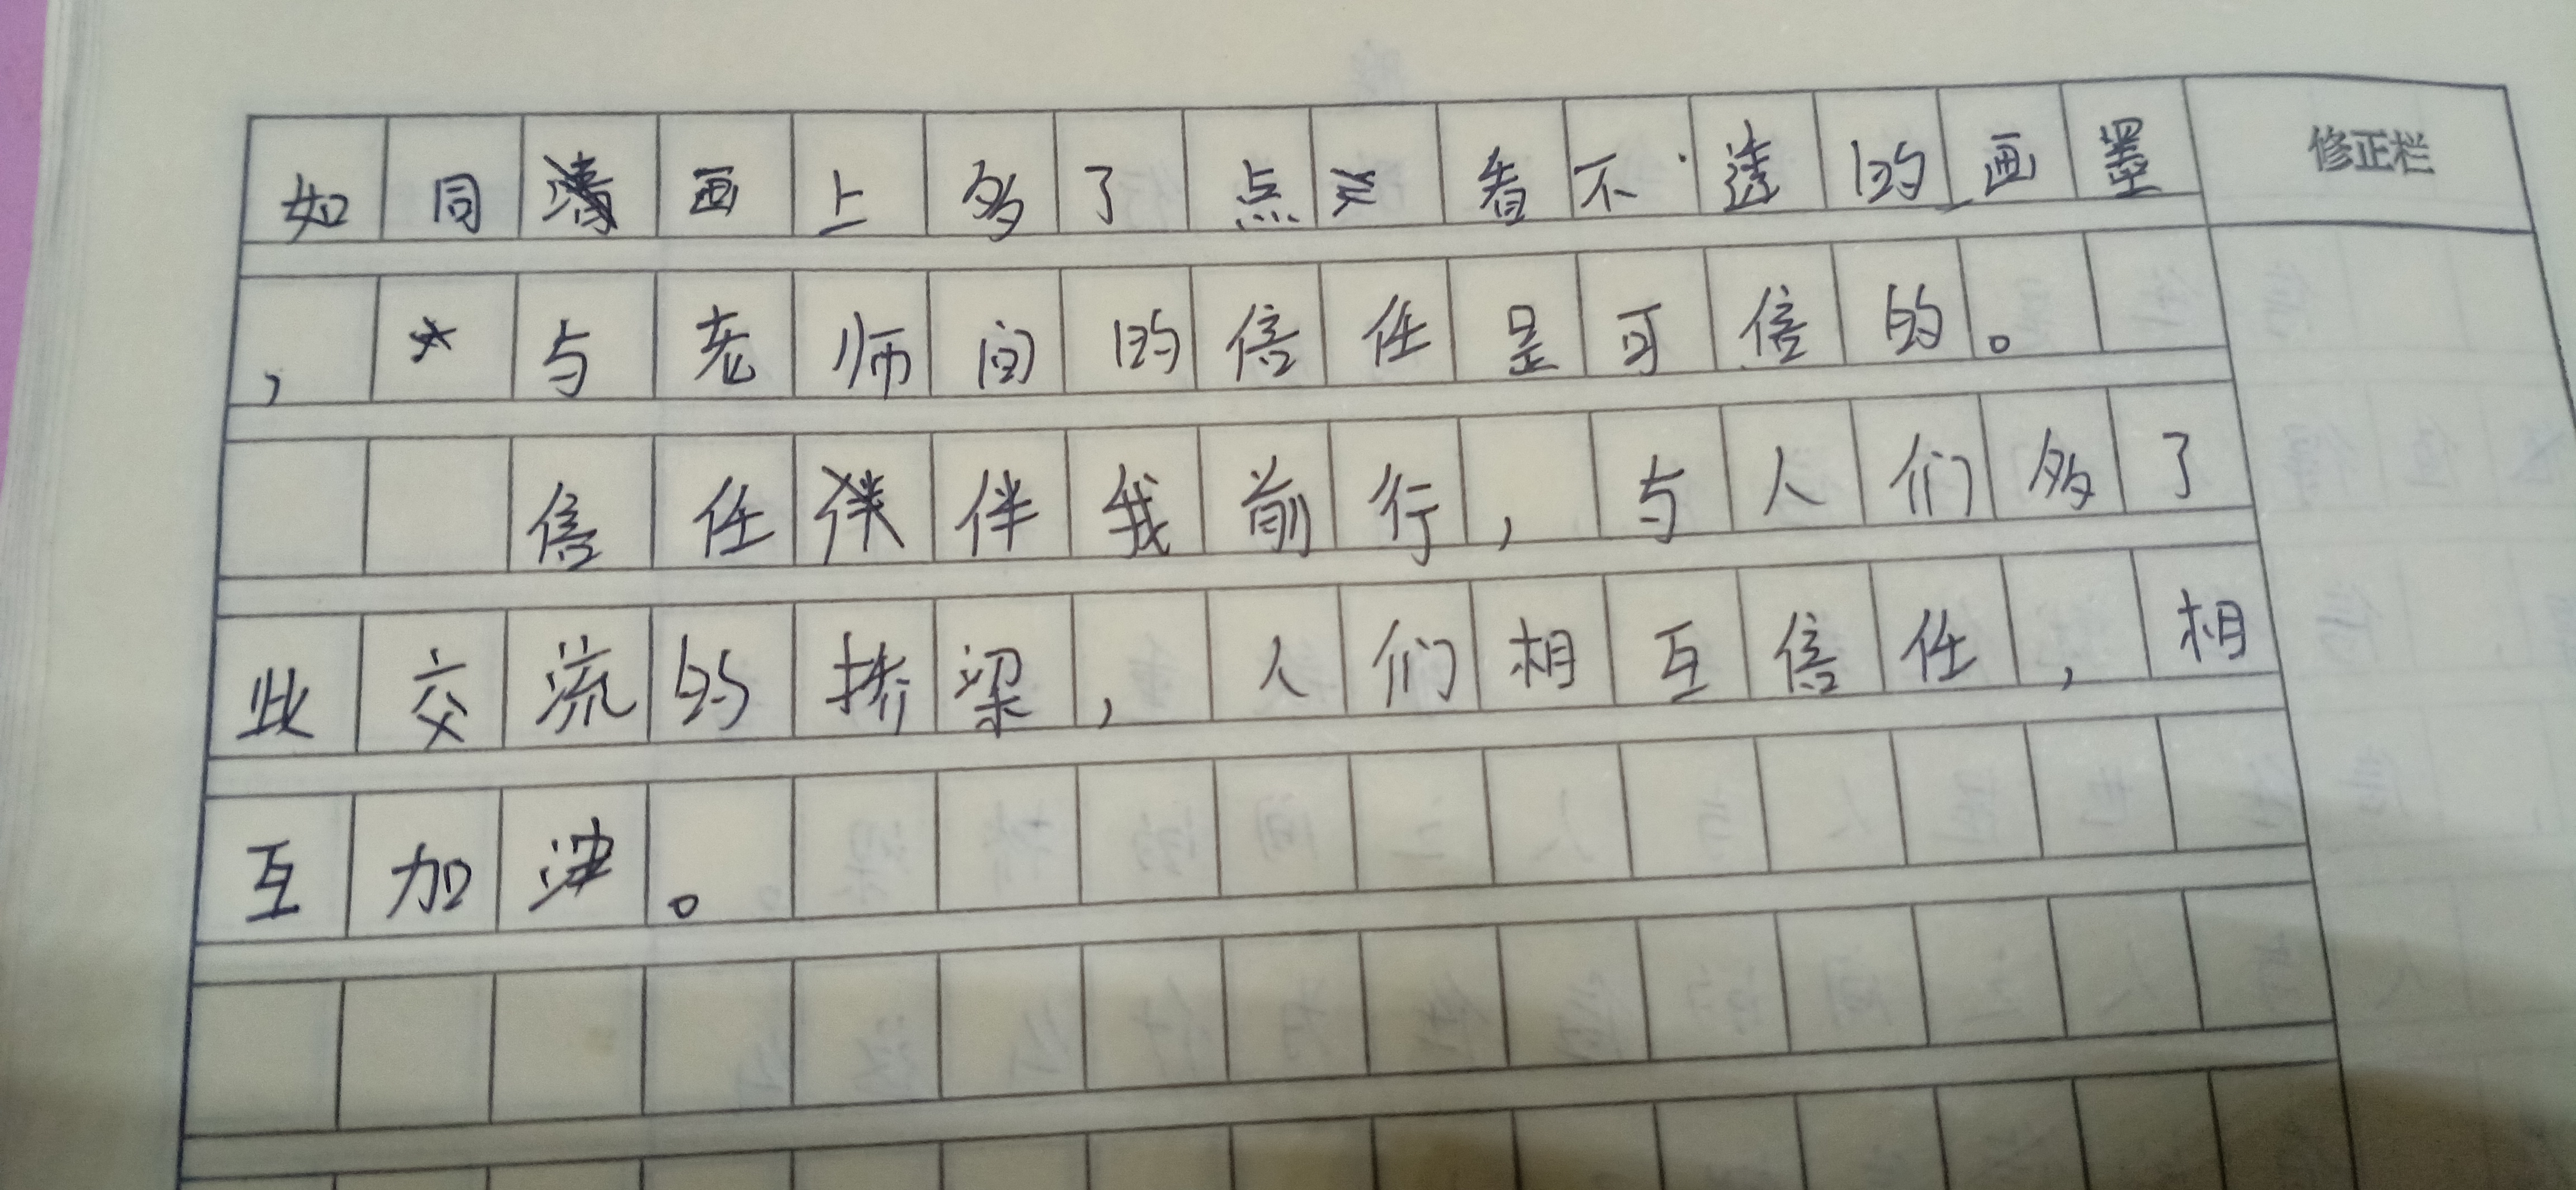 如同画上多了点看不透的画墨 修正栏
，与老师间的信任是可信的。
信任伴我前行，与人们多了
此交流的桥梁，人们相互信任，相
互加油。